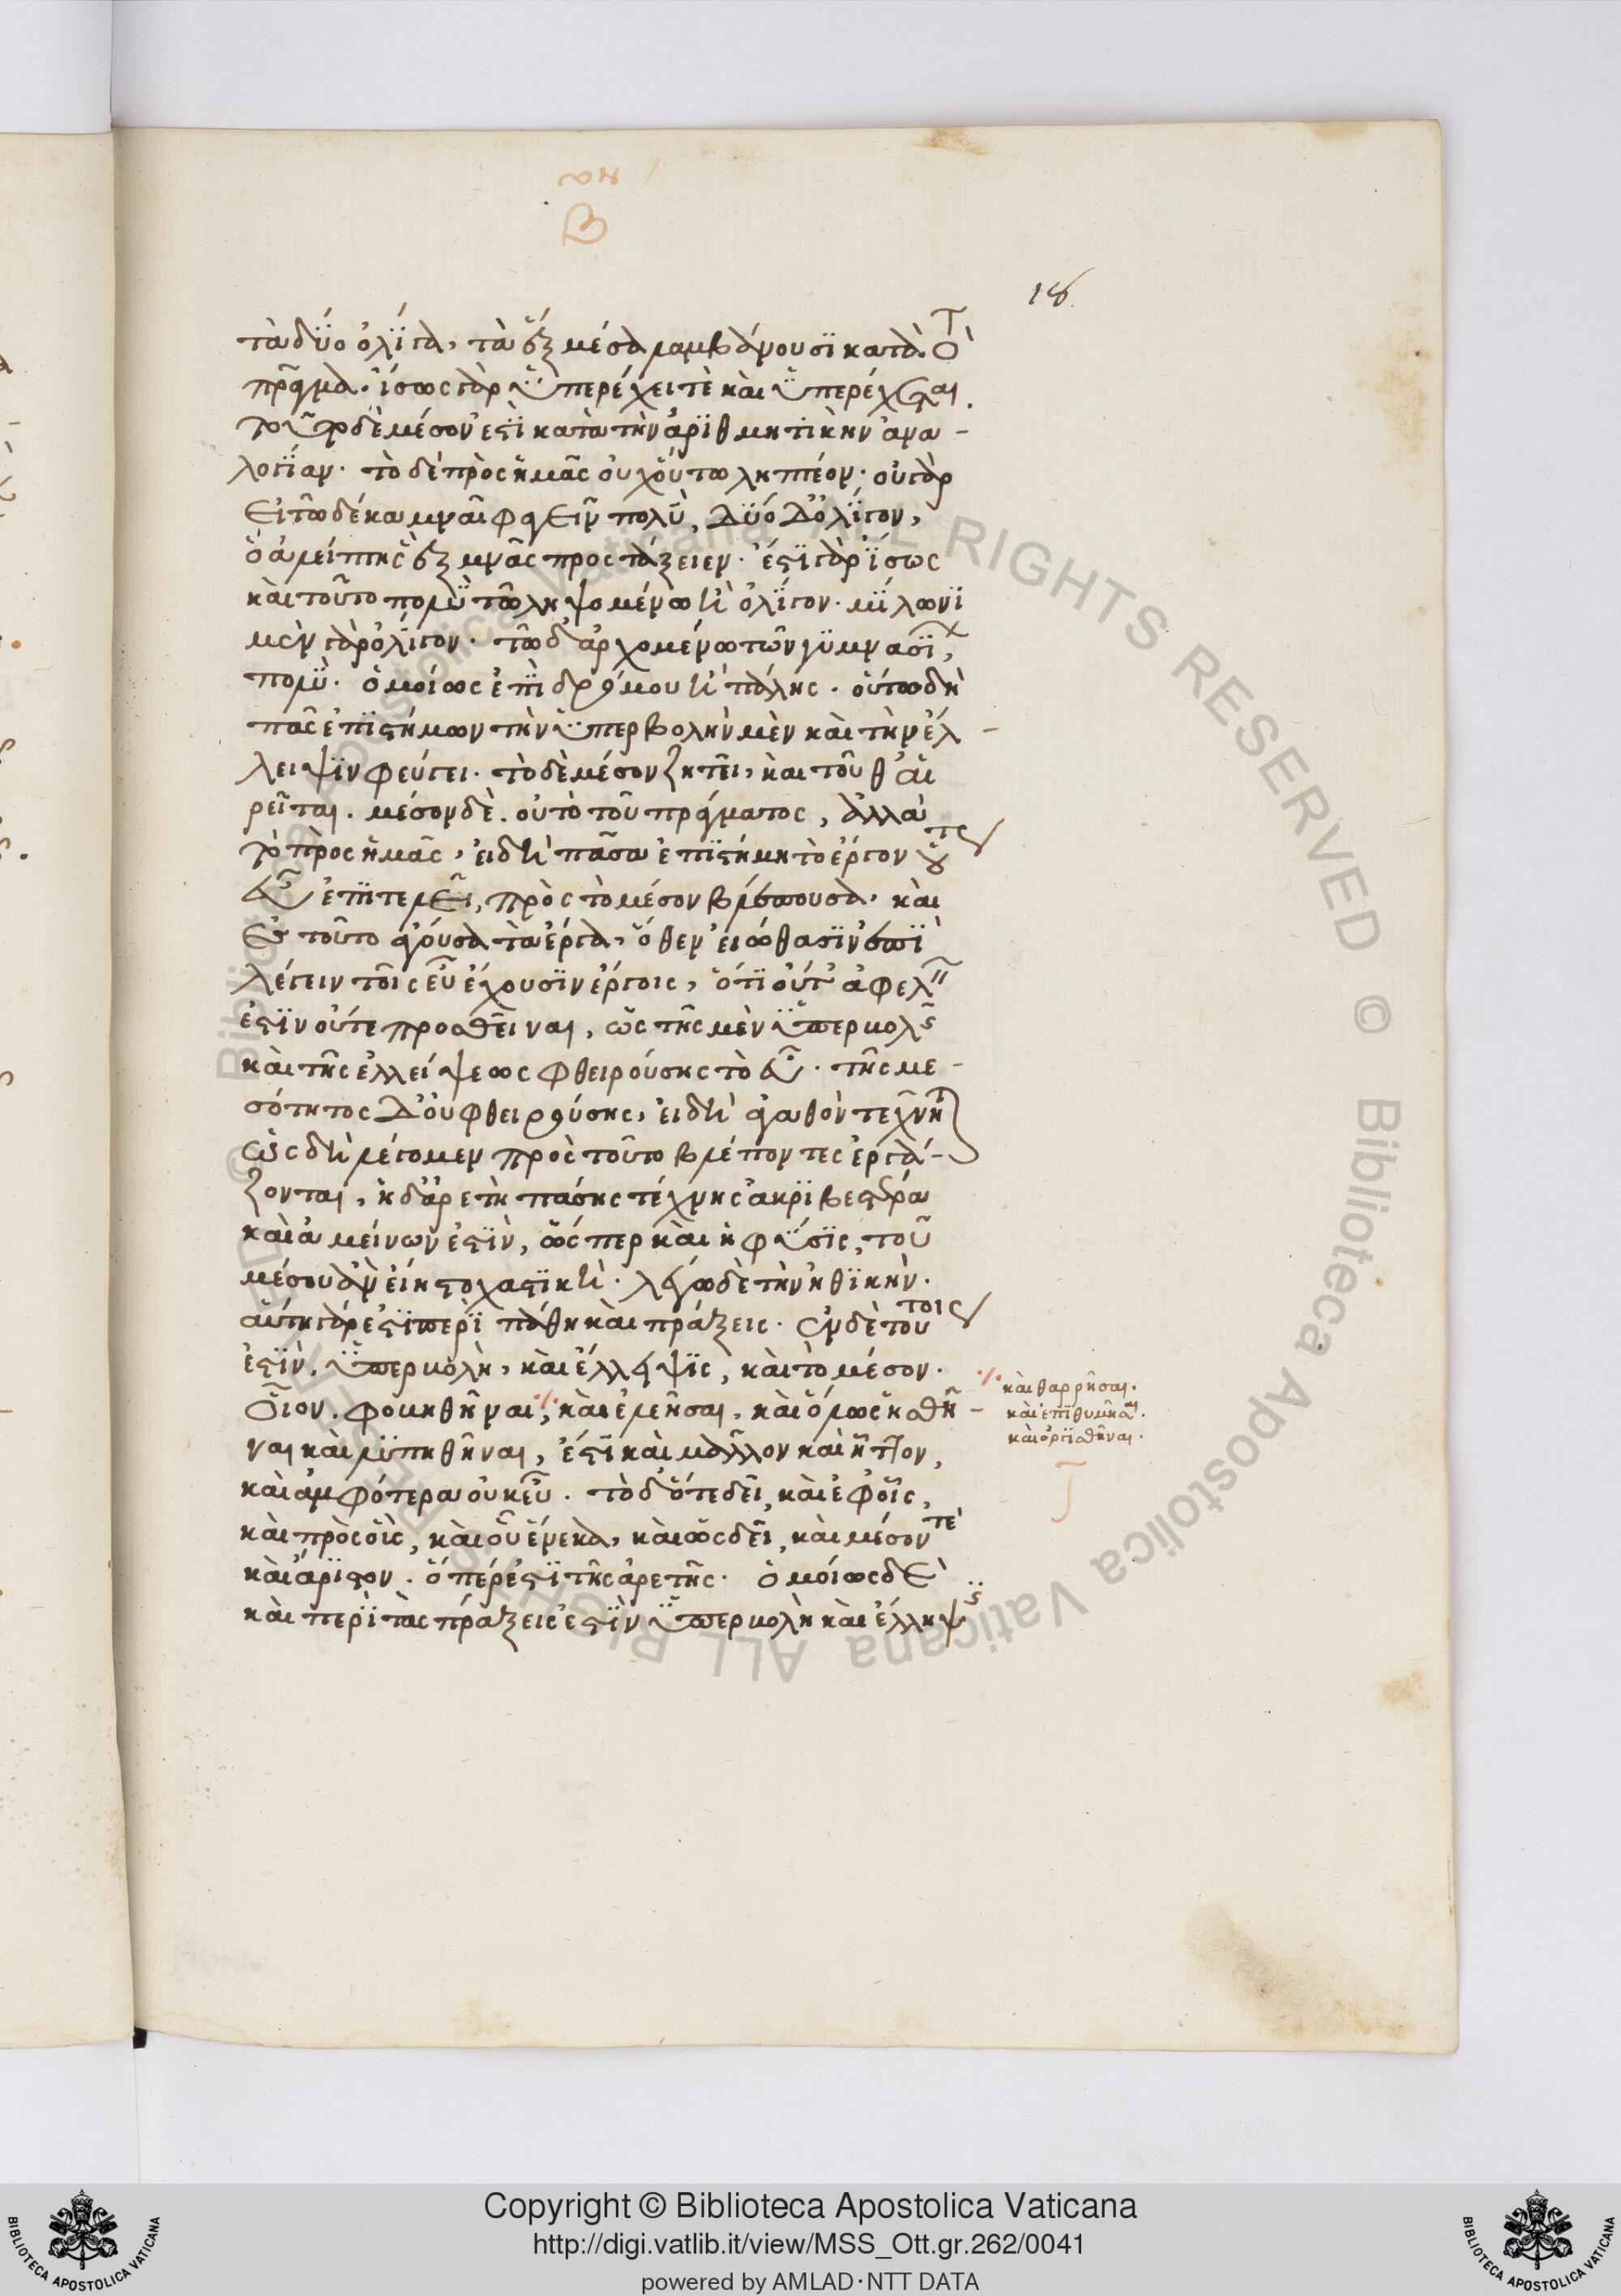 18
τὰ δύο ὀλίγα, τὰ ἓξ μέσα λαμβάνουσι κατὰ τὸ
πρᾶγμα. ἴσως γὰρ ὑπερέχει τὲ καὶ ὑπερέχεται.
τοῦτο δὲ μέσον ἐστὶ κατὰ τὴν ἀριθμητικὴν ἀνα-
λογίαν. τὸ δὲ πρὸς ἡμᾶς οὐχ οὕτω ληπτέον. οὐ γὰρ
εἰ τῷ δέκα μναῖ φαγεῖν πολὺ, δύο δ' ὀλίγον,
ὁ ἀλείπτης ἓξ μνᾶς προστάξειεν. ἔστι γὰρ ἴσως
καὶ τοῦτο πολὺ τῷ ληψομένῳ ἢ ὀλίγον. μίλωνι
μὲν γὰρ ὀλίγον. τῷ δ' ἀρχομένῳ τῶν γυμνασί,
πολύ. ὁμοίως ἐπὶ δρόμου ἢ πάλης. οὕτω δὴ
πᾶς ἐπιστήμων τὴν ὑπερβολὴν μὲν καὶ τὴν ἔλ-
λειψιν φεύγει. τὸ δὲ μέσον ζητεῖ, καὶ τοῦθ' αἱ
ρεῖται. μέσον δὲ. οὐ τὸ τοῦ πράγματος, ἀλλὰ
τὸ πρὸς ἡμᾶς, εἰ δὴ πᾶσα ἐπιστήμη τὸ ἔργον οὕτως
εὖ ἐπιτελεῖ, πρὸς τὸ μέσον βλέπουσα. καὶ
εἰς τοῦτο ἄγουσα τὰ ἔργα, ὅθεν εἰώθασιν ἐπι
λέγειν τοῖς εὖ ἔχουσιν ἔργοις, ὅτι οὔτ' ἀφελεῖν
ἔστιν οὔτε προσθεῖναι, ὡς τῆς μὲν ὑπερβολῆς
καὶ τῆς ἐλλείψεως φθειρούσης τὸ εὖ. τῆς με-
σότητος δ' οὐ φθειρούσης, εἰ δὴ ἀγαθὸν τεχνῖται
ὡς δὴ λέγομεν πρὸς τοῦτο βλέποντες ἐργά-
ζονται, ἡ δ' ἀρετὴ πάσης τέχνης ἀκριβεστέρα
καὶ ἀμείνων ἐστὶν, ὥσπερ καὶ ἡ φύσις, τοῦ
μέσου ἂν εἴη στοχαστικὴ. λέγω δὲ τὴν ἠθικὴν.
αὕτη γάρ ἐστι περὶ πάθη καὶ πράξεις. ἐν δὲ τούτοις
ἐστὶν. ὑπερβολὴ, καὶ ἔλλειψις, καὶ τὸ μέσον.
οἷον. φοβηθῆναι, καὶ ἐλεῆσαι, καὶ ὅλως ἡσθῆ-
ναι καὶ λυπηθῆναι, ἔστι καὶ μᾶλλον καὶ ἧττον,
καὶ ἀμφότερα οὐκ εὖ. τὸ δ' ὅτε δεῖ, καὶ ἐφ' οἷς,
καὶ πρὸς οἷς, καὶ οὗ ἕνεκα, καὶ ὡς δεῖ, καὶ μέσον τὲ
καὶ ἄριστον. ὅπερ ἐστὶ τῆς ἀρετῆς. ὁμοίως δὲ
καὶ περὶ τὰς πράξεις ἐστὶν ὑπερβολὴ καὶ ἔλλειψις
καὶ θαρρῆσαι.
καὶ ἐπιθυμῆσαι.
καὶ ὀργισθῆναι.
Copyright © Biblioteca Apostolica Vaticana
http://digi.vatlib.it/view/MSS_Ott.gr.262/0041
powered by AMLAD·NTT DATA
BIBLIOTECA APOSTOLICA VATICANA
BIBLIOTECA APOSTOLICA VATICANA
© Biblioteca Apostolica Vaticana ALL RIGHTS RESERVED © Biblioteca Apostolica Vaticana ALL RIGHTS RESERVED